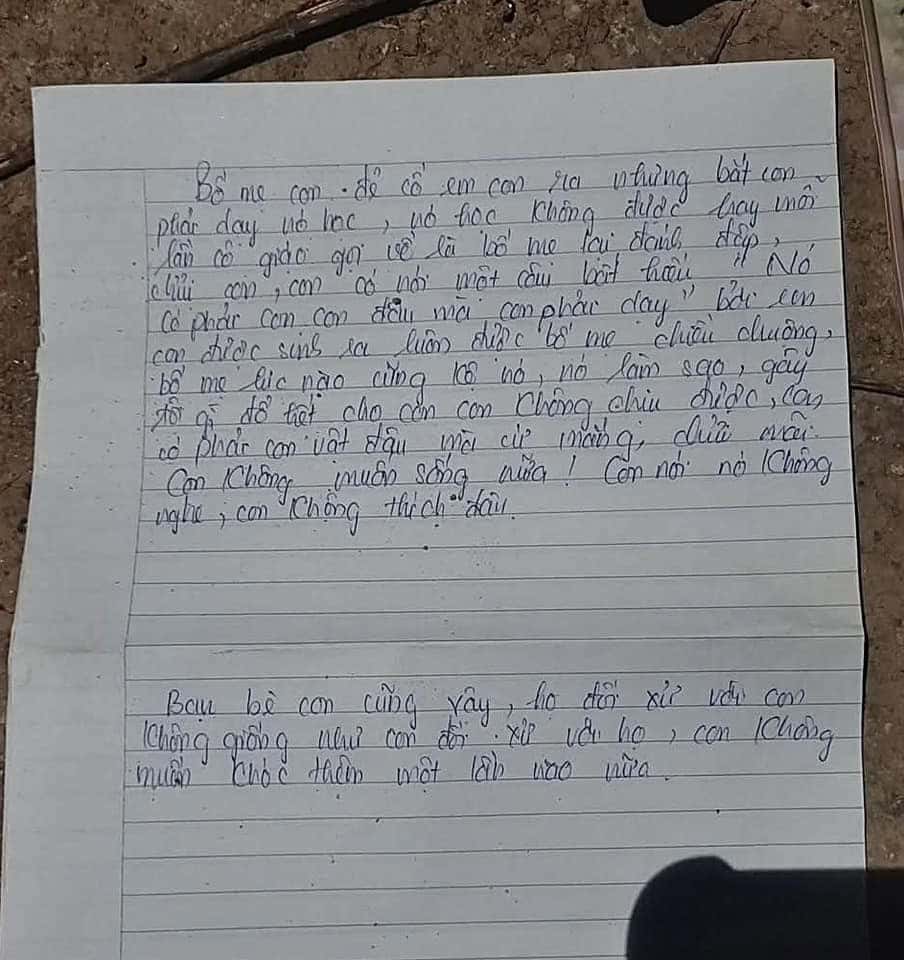 Bố mẹ con đẻ cố em con ra nhưng bắt con
phải dạy nó học, nó học không được hay mỗi
lần cô giáo gọi về là bố mẹ lại đánh đập,
chửi con, con có nói một câu bất hiếu " Nó
có phải con con đâu mà con phải dạy" bởi em
con được sinh ra luôn được bố mẹ chiều chuộng,
bố mẹ lúc nào cũng kệ nó, nó làm sao, gây
đổ hết cho con con không chịu được, con
có phải con vật đâu mà cứ mắng, chửi mãi.
Con không muốn sống nữa! Con nói nó không
nghe, con không thích đâu.
Bạn bè con cũng vậy, họ đối xử với con
không giống như con đối xử với họ, con không
muốn khóc thêm một lần nào nữa.